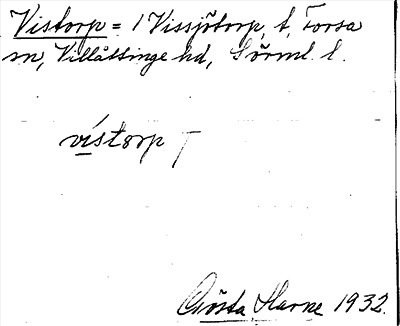 Vistorp = 1 Vissjötorp, t, Forsa
sn, Villåttinge hd, Sörml. l.
vistorp
Gösta Harne 1932.